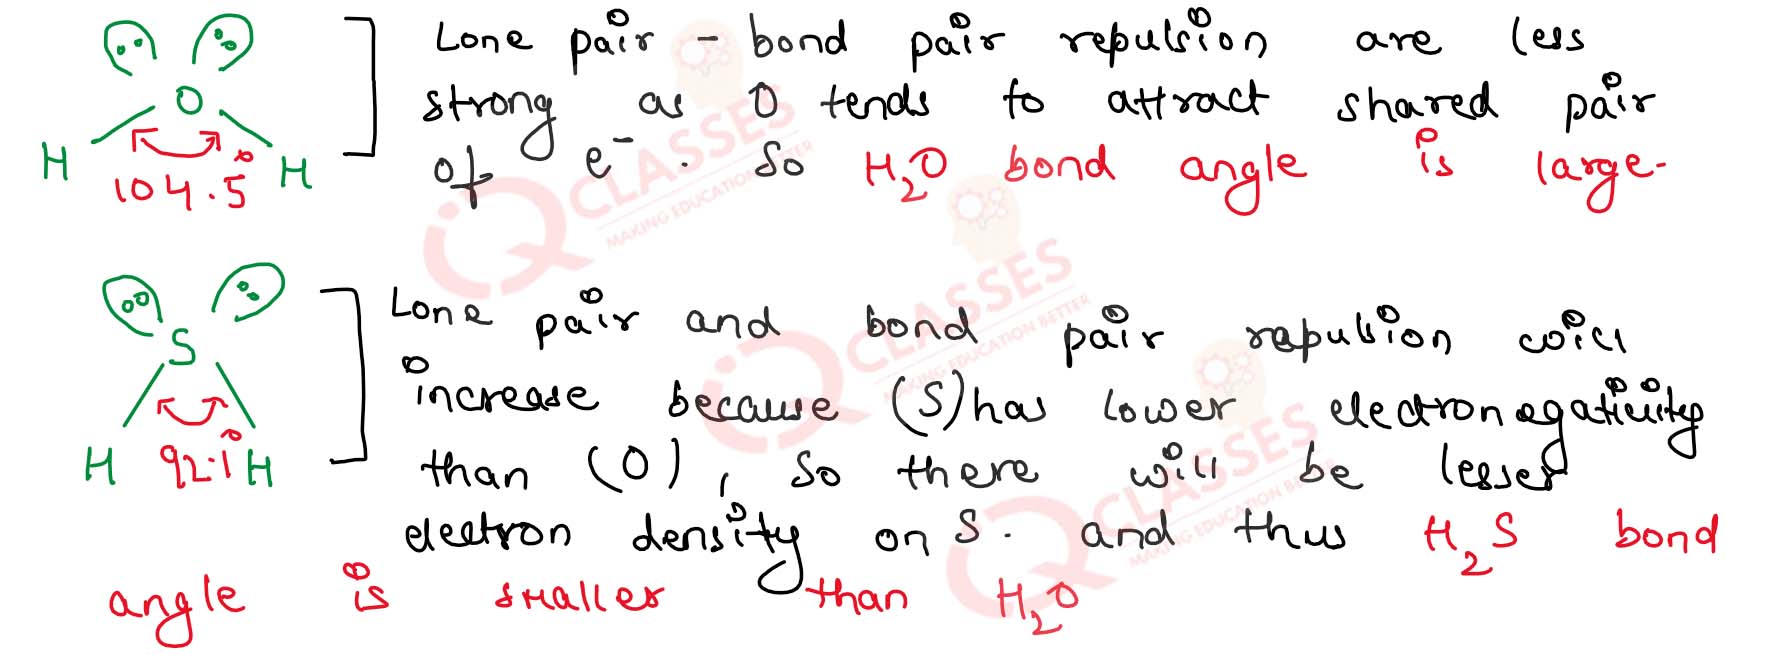 O
H H
104.5°
Lone pair - bond pair repulsion are less
strong as O tends to attract shared pair
of e⁻. So H₂O bond angle is large.
S
H 92.1° H
Lone pair and bond pair repulsion will
increase because (S) has lower electronegativity
than (O), so there will be lesser
electron density on S. and thus H₂S bond
angle is smaller than H₂O
iQ CLASSES
MAKING EDUCATION BETTER
iQ CLASSES
MAKING EDUCATION BETTER
iQ CLASSES
MAKING EDUCATION BETTER